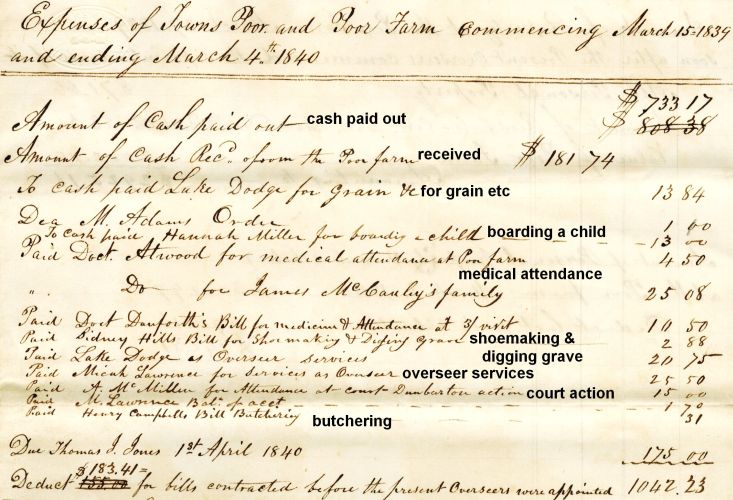 Expenses of Towns Poor and Poor Farm commencing March 15=1839
and ending March 4.th 1840
$ 733 17
Amount of Cash paid out cash paid out $ 808 38
Amount of Cash Recd. from the Poor farm received $ 181 74
To cash paid Luke Dodge for grain &c for grain etc 13 84
Dea M. Adams Order 1 00
To cash paid Hannah Miller for boardig a child boarding a child 13 00
Paid Doct. Atwood for medical attendance at Poor farm 4 50
medical attendance
" Do for James McCauley's family 25 08
Paid Doct Danforth's Bill for medicine & Attendance at 3/ visit 10 50
Paid Sidney Hills Bill for Shoemaking & Diging Grave shoemaking & 2 88
digging grave
Paid Luke Dodge as Overseer services 20 75
Paid Micah Lawrence for services as Overseer overseer services 25 50
Paid A. McMillen for Attendance at court Dunbarton action court action 15 00
Paid M. Lawrence Bal. of acct 1 70
Paid Henry Campbells Bill Butchering 31
butchering
Due Thomas J. Jones 1st April 1840 175 00
$183.41=
Deduct for bills contracted before the present Overseers were appointed 1042 23